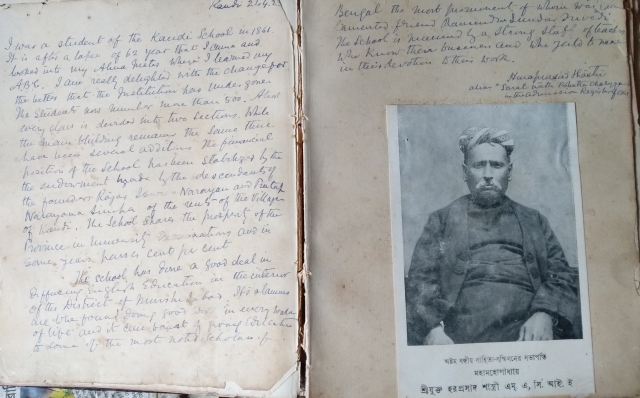 Kandi 21.4.23
I was a student of the Kandi School in 1861.
It is after a lapse of 62 year that I came and
looked into my Alma Mater where I learned my
A B C. I am really delighted with the change for
the better that the Institution has undergone
The students now number more than 500. Almost
every class is divided into two sections. While
the main building remains the same there
have been several additions. The financial
position of the School has been stabilized by the
the endowment made by the descendants of
the founder Rajas Narayan and Pratap
Narayan Sinha of the rents of the Village
of Kandi. The School shares the prosperity of the
Province in University Examinations and in
some years passes cent per cent
The school has done a good deal in
diffusing English Education in the interior
of the District of Murshidabad. Its alumnus
are the found doing good in every walk
of life and it can boast of giving Education
to some of the most noted Scholars of
Bengal the most prominent of whom was our
lamented friend Ramendra Sundar Trivedi
The School is manned by a strong staff of teachers
who know their business and who
in their devotion to their work.
Haraprasad Shastri
alias "Sarat Nath Bhattacharyya
in the Admission Register of 1861
অষ্টম বঙ্গীয় সাহিত্য-সম্মিলনের সভাপতি
মহামহোপাধ্যায়
শ্রীযুক্ত হরপ্রসাদ শাস্ত্রী এম্ এ, সি. আই. ই